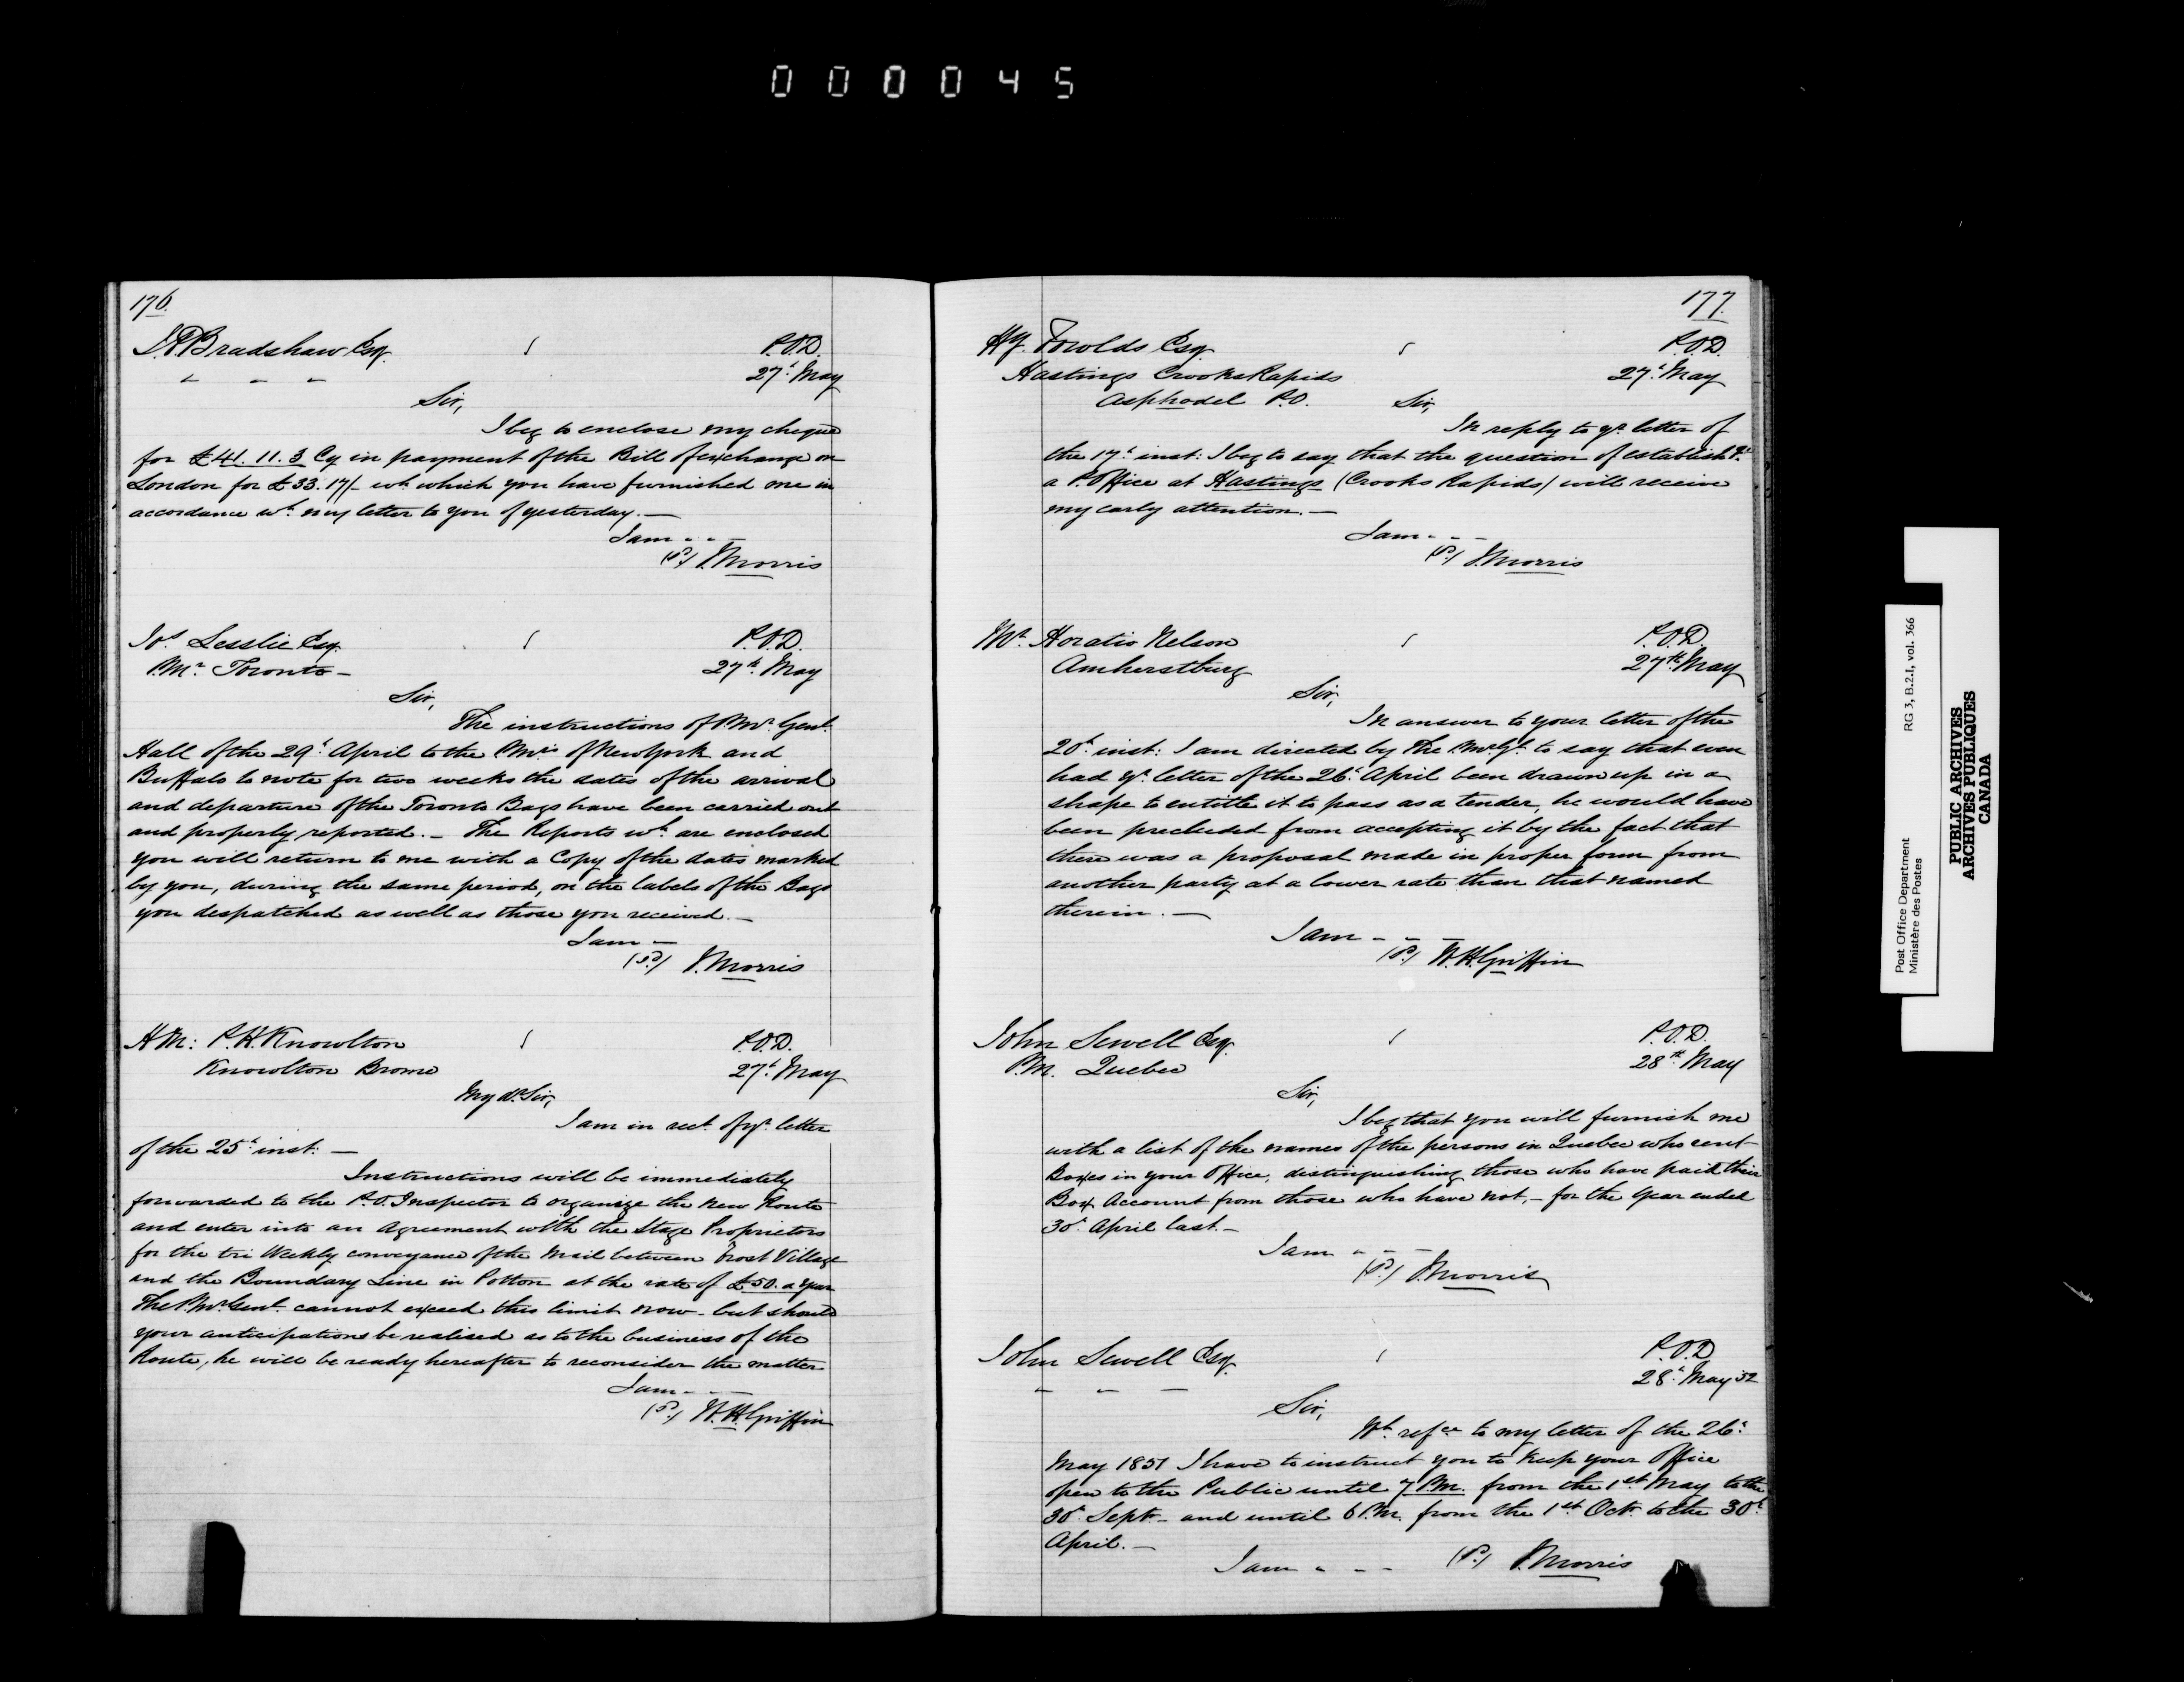 000045
176.
J.F. Bradshaw Esq.
P.O.D.
" " "
27th May
Sir,
I beg to enclose my cheque
for £41. 11. 3 Cy in payment of the Bill of exchange on
London for £33. 17/- wh which you have furnished me in
accordance wh my letter to you of yesterday. —
I am - - -
(Sd) J. Morris
Jos Lesslie Esq.
P.O.D.
P.Mr. Toronto -
27th May
Sir,
The instructions of P.Mr Genl.
Hall of the 29th April to the P.Mrs of New York and
Buffalo to note for two weeks the dates of the arrival
and departure of the Toronto Bags have been carried out
and properly reported. - The Reports wh. are enclosed
you will return to me with a Copy of the dates marked
by you, during the same period, on the labels of the Bags
you despatched as well as those you received. —
I am —
(Sd) J. Morris
H M: P.H. Knowlton
P.O.D.
Knowlton Brome
27th May
My dr Sir,
I am in rect. of yr. letter
of the 25th inst: —
Instructions will be immediately
forwarded to the P.O. Inspector to organize the new Route
and enter into an Agreement with the Stage Proprietors
for the tri Weekly conveyance of the Mail between Frost Village
and the Boundary Line in Potton at the rate of £50. a year
The P.Mr Genl. cannot exceed this limit now - but should
your anticipations be realised as to the business of the
Route, he will be ready hereafter to reconsider the matter
I am - - —
(Sd) W.H. Griffin
177.
Hy. Fowlds Esq.
P.O.D.
Hastings Crooks Rapids
27th May
Asphodel P.O.
Sir,
In reply to yr. letter of
the 17th inst: I beg to say that the question of establishg.
a P. Office at Hastings (Crooks Rapids) will receive
my early attention. —
I am - - -
(Sd) J. Morris
Mr. Horatio Nelson
P.O.D.
Amherstburg
27th May
Sir,
In answer to your letter of the
20th inst: I am directed by The P.Mr.Gl. to say that even
had yr. letter of the 26th April been drawn up in a
shape to entitle it to pass as a tender, he would have
been precluded from accepting it by the fact that
there was a proposal made in proper form from
another party at a lower rate than that named
therein. —
I am - - —
(Sd) W.H. Griffin
John Sewell Esq.
P.O.D.
P.M. Quebec
28th May
Sir,
I beg that you will furnish me
with a list of the names of the persons in Quebec who rent
Boxes in your Office, distinguishing those who have paid their
Box Account from those who have not, - for the year ended
30th April last. —
I am " - —
(Sd) J. Morris
John Sewell Esq.
P.O.D
- " —
28th May 52
Sir,
Wh. refce to my letter of the 26th
May 1851 I have to instruct you to keep your Office
open to the Public until 7 P.M. from the 1st May to the
30th Sept. - and until 6 P.M. from the 1st Oct. to the 30th
April. —
I am " - -
(Sd) J. Morris
Post Office Department
Ministère des Postes
RG 3, B.2.I, vol. 366
PUBLIC ARCHIVES
ARCHIVES PUBLIQUES
CANADA